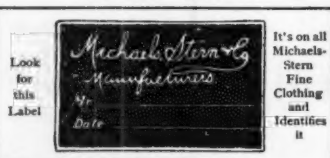 Look
for
this
Label
Michaels, Stern & Co
Manufacturers
Mr.
Date
It's on all
Michaels-
Stern
Fine
Clothing
and
Identifies
it